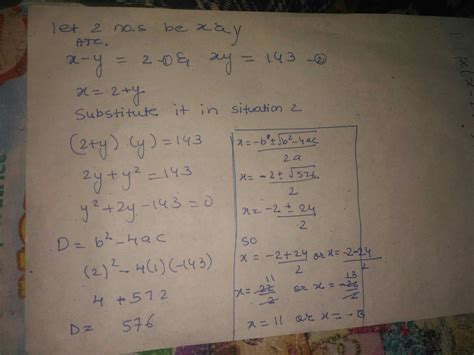 let 2 no.s be x & y
ATC.
x-y = 2 -① & xy = 143 -②
x = 2+y
Substitute it in situation 2
(2+y) (y) = 143
2y + y² = 143
y² + 2y - 143 = 0
D = b² - 4ac
(2)² - 4(1)(-143)
4 + 572
D = 576
x = -b ± √b² - 4ac
2a
x = -2 ± √576
2
x = -2 ± 24
2
SO
x = -2 + 24 or x = -2 - 24
2 2
11 13
x = 22 or x = -26
2 2
x = 11 or x = -13